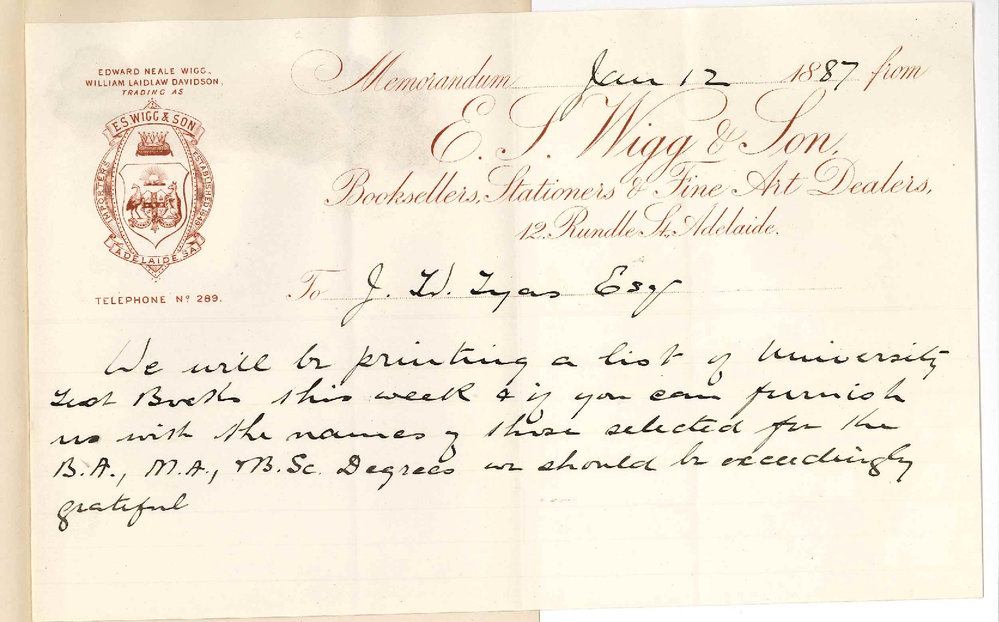 EDWARD NEALE WIGG.
WILLIAM LAIDLAW DAVIDSON.
TRADING AS
E.S. WIGG & SON
IMPORTERS
ESTABLISHED 1849
ADELAIDE, S.A.
TELEPHONE No 289.
Memorandum Jan 12 1887 from
E. S. Wigg & Son,
Booksellers, Stationers & Fine Art Dealers,
12. Rundle St., Adelaide.
To J. W. Tyas Esq
We will be printing a list of University
Text Books this week & if you can furnish
us with the names of those selected for the
B.A., M.A., B.Sc. Degrees we should be exceedingly
grateful